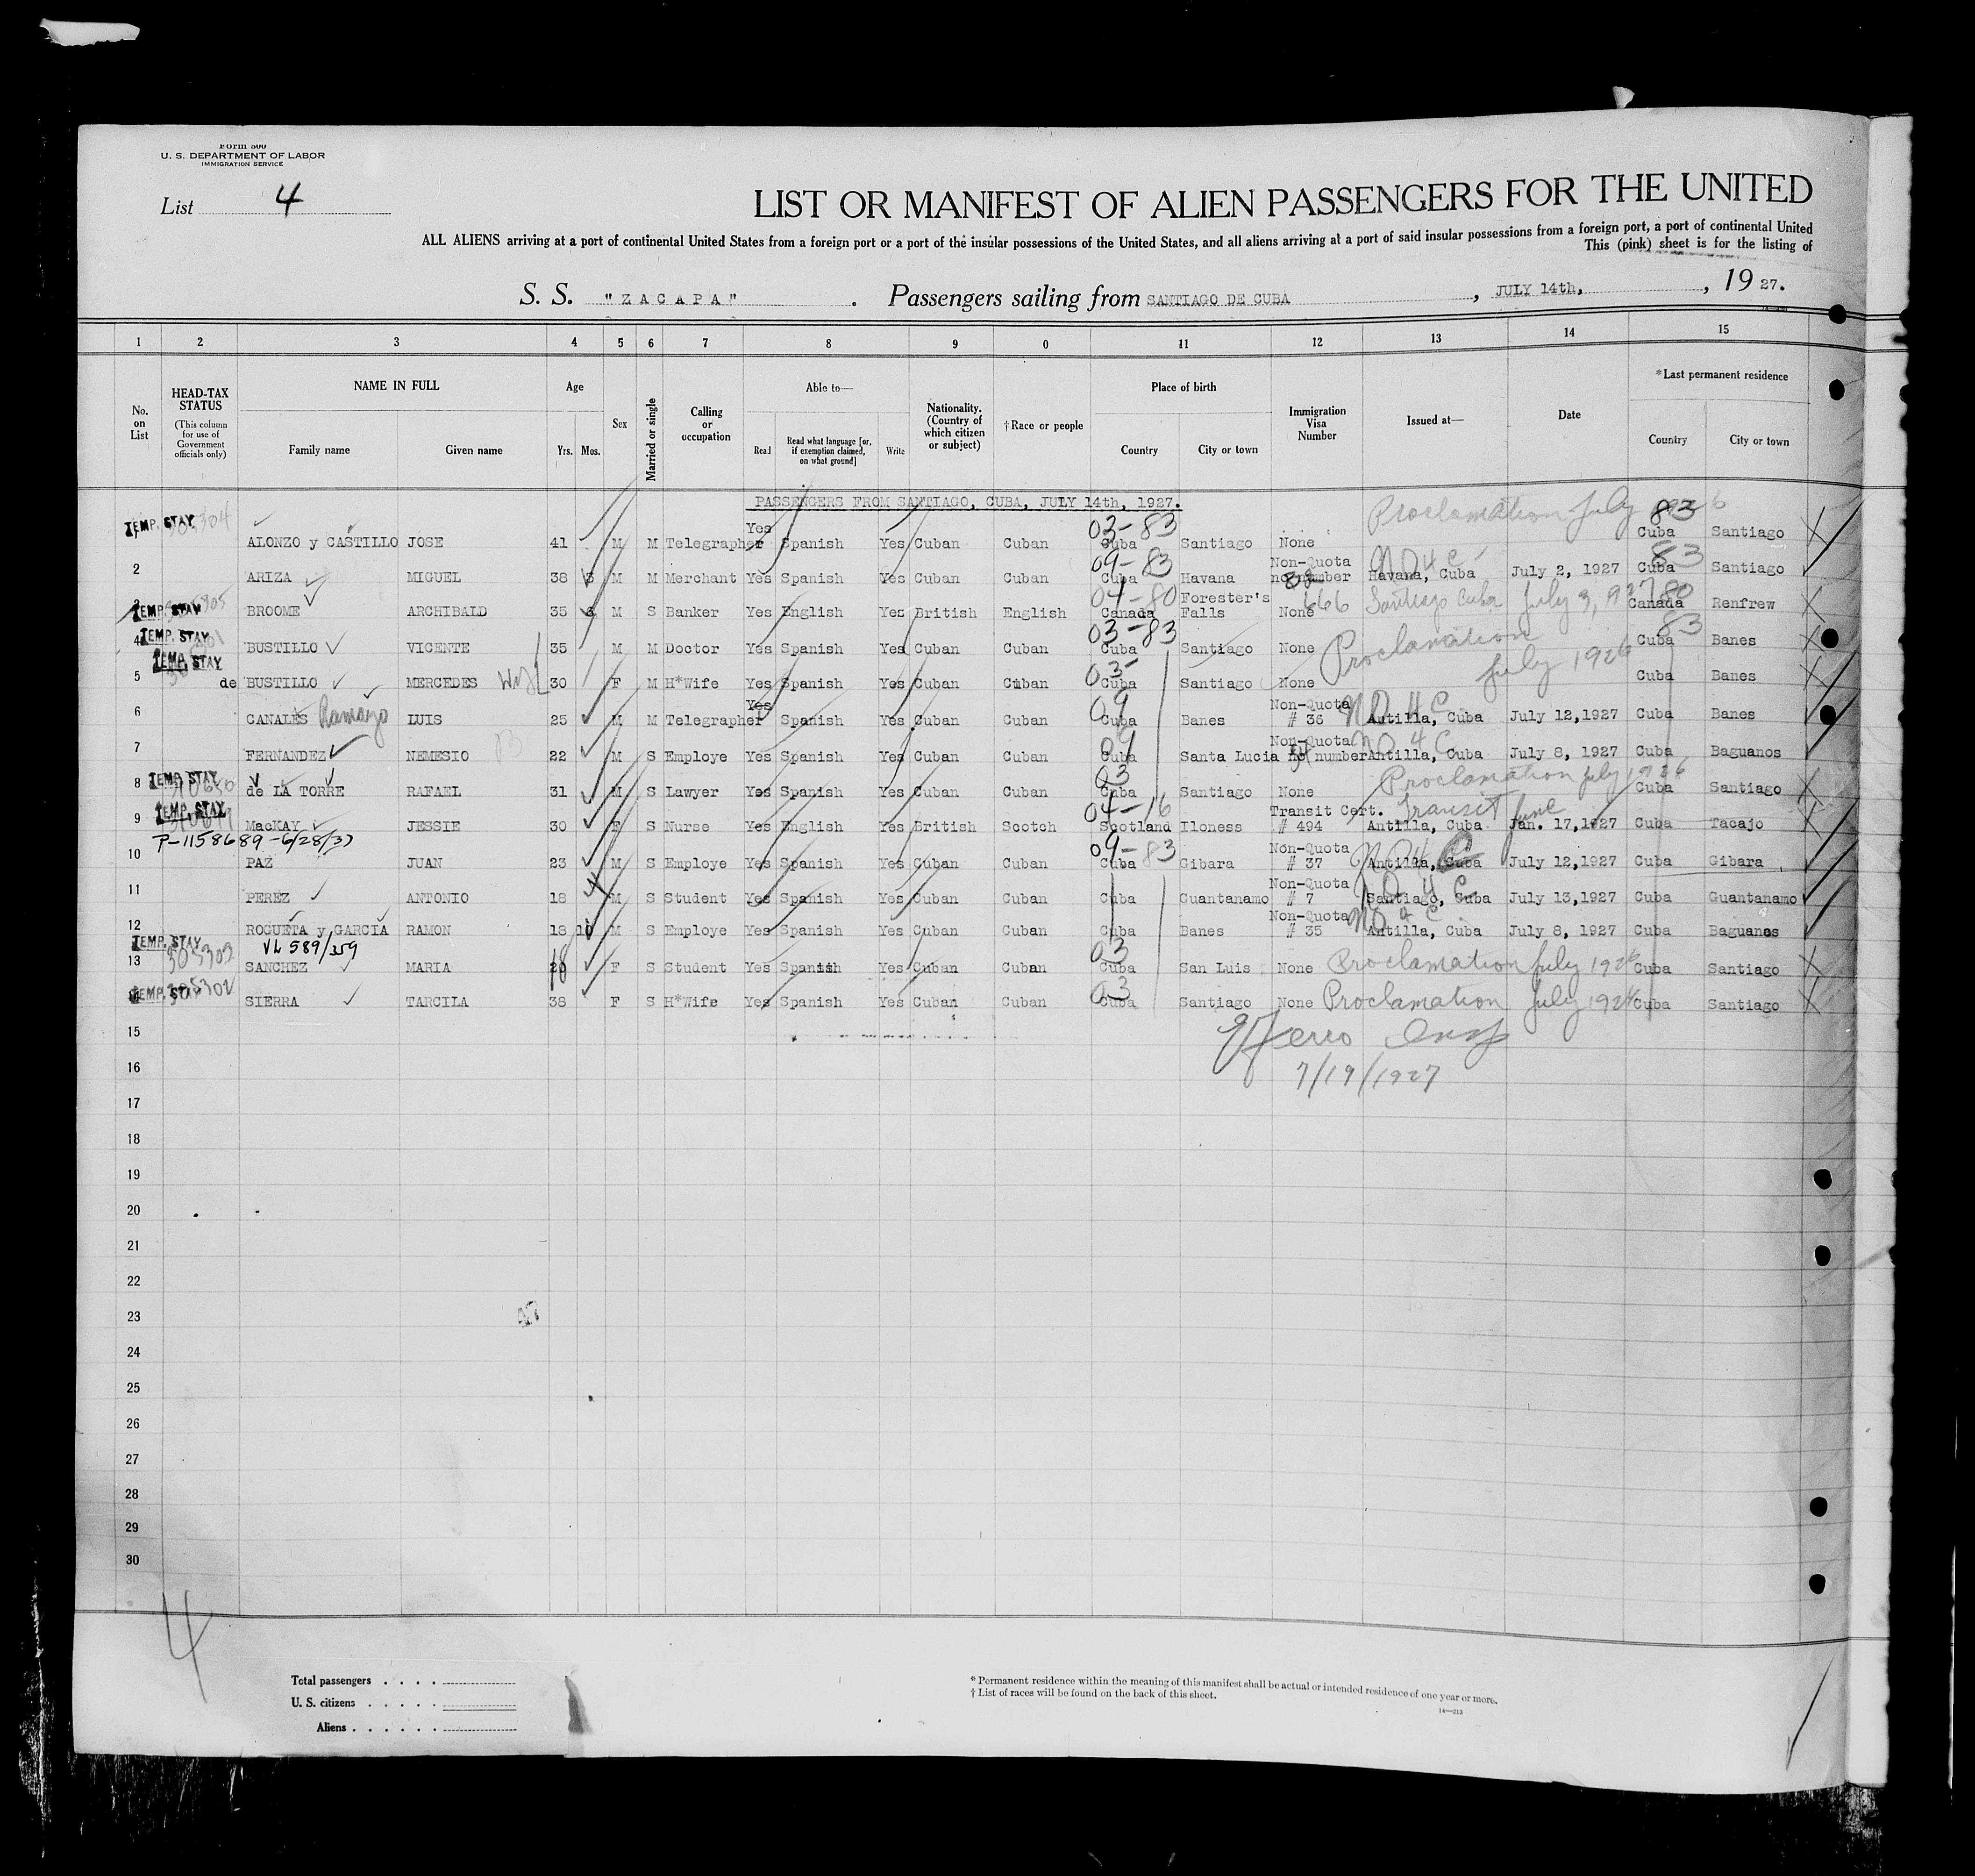 Form 500
U. S. DEPARTMENT OF LABOR
IMMIGRATION SERVICE
List 4
LIST OR MANIFEST OF ALIEN PASSENGERS FOR THE UNITED
ALL ALIENS arriving at a port of continental United States from a foreign port or a port of the insular possessions of the United States, and all aliens arriving at a port of said insular possessions from a foreign port, a port of continental United
This (pink) sheet is for the listing of
S. S. "ZACAPA" . Passengers sailing from SANTIAGO DE CUBA , JULY 14th, , 1927.
1 2 3 4 5 6 7 8 9 0 11 12 13 14 15
No. on List
HEAD-TAX STATUS (This column for use of Government officials only)
NAME IN FULL
Family name Given name
Age
Yrs. Mos.
Sex
Married or single
Calling or occupation
Able to—
Read Read what language [or, if exemption claimed, on what ground] Write
Nationality. (Country of which citizen or subject)
†Race or people
Place of birth
Country City or town
Immigration Visa Number
Issued at—
Date
*Last permanent residence
Country City or town
PASSENGERS FROM SANTIAGO, CUBA, JULY 14th, 1927.
TEMP. STAY 305304 ALONZO y CASTILLO JOSE 41 M M Telegrapher Yes Spanish Yes Cuban Cuban 03-83 Cuba Santiago None Proclamation July 1926 83 Cuba Santiago
2 ARIZA MIGUEL 38 M M Merchant Yes Spanish Yes Cuban Cuban 09-83 Cuba Havana Non-Quota no number NO 4 C Havana, Cuba July 2, 1927 83 Cuba Santiago
TEMP. STAY BROOME ARCHIBALD 35 M S Banker Yes English Yes British English 04-80 Canada Forester's Falls None 666 Santiago Cuba July 9, 1927 80 Canada Renfrew
4 TEMP. STAY BUSTILLO VICENTE 35 M M Doctor Yes Spanish Yes Cuban Cuban 03-83 Cuba Santiago None Proclamation 83 Cuba Banes
5 TEMP. STAY de BUSTILLO MERCEDES Wife 30 F M H*Wife Yes Spanish Yes Cuban Cuban 03- Cuba Santiago None July 1926 Cuba Banes
6 CANALES Ramayo LUIS 25 M M Telegrapher Yes Spanish Yes Cuban Cuban 09 Cuba Banes Non-Quota # 36 NO 4 C Antilla, Cuba July 12,1927 Cuba Banes
7 FERNANDEZ NEMESIO 22 M S Employe Yes Spanish Yes Cuban Cuban 09 Cuba Santa Lucia Non-Quota no number NO 4 C Antilla, Cuba July 8, 1927 Cuba Baguanos
8 TEMP. STAY de LA TORRE RAFAEL 31 M S Lawyer Yes Spanish Yes Cuban Cuban 03 Cuba Santiago None Proclamation July 1926 Cuba Santiago
9 TEMP. STAY MacKAY JESSIE 30 F S Nurse Yes English Yes British Scotch 04-16 Scotland Iloness Transit Cert. # 494 Transit June Antilla, Cuba Jan. 17,1927 Cuba Tacajo
P-1158689-6/28/37
10 PAZ JUAN 23 M S Employe Yes Spanish Yes Cuban Cuban 09-83 Cuba Gibara Non-Quota # 37 NO 4 C Antilla, Cuba July 12,1927 Cuba Gibara
11 PEREZ ANTONIO 18 M S Student Yes Spanish Yes Cuban Cuban Cuba Guantanamo Non-Quota # 7 NO 4 C Santiago, Cuba July 13,1927 Cuba Guantanamo
12 ROGUETA y GARCIA RAMON 18 10 M S Employe Yes Spanish Yes Cuban Cuban Cuba Banes Non-Quota # 35 NO 4 C Antilla, Cuba July 8, 1927 Cuba Baguanos
VL 589/359
13 TEMP. STAY 305303 SANCHEZ MARIA 18 F S Student Yes Spanish Yes Cuban Cuban 03 Cuba San Luis None Proclamation July 1926 Cuba Santiago
TEMP. STAY 305302 SIERRA TARCILA 38 F S H*Wife Yes Spanish Yes Cuban Cuban 03 Cuba Santiago None Proclamation July 1926 Cuba Santiago
15
16 7/19/1927
17
18
19
20
21
22
23
24
25
26
27
28
29
30
4
Total passengers . . . .
U. S. citizens . . . . .
Aliens . . . . . .
* Permanent residence within the meaning of this manifest shall be actual or intended residence of one year or more.
† List of races will be found on the back of this sheet.
14—213